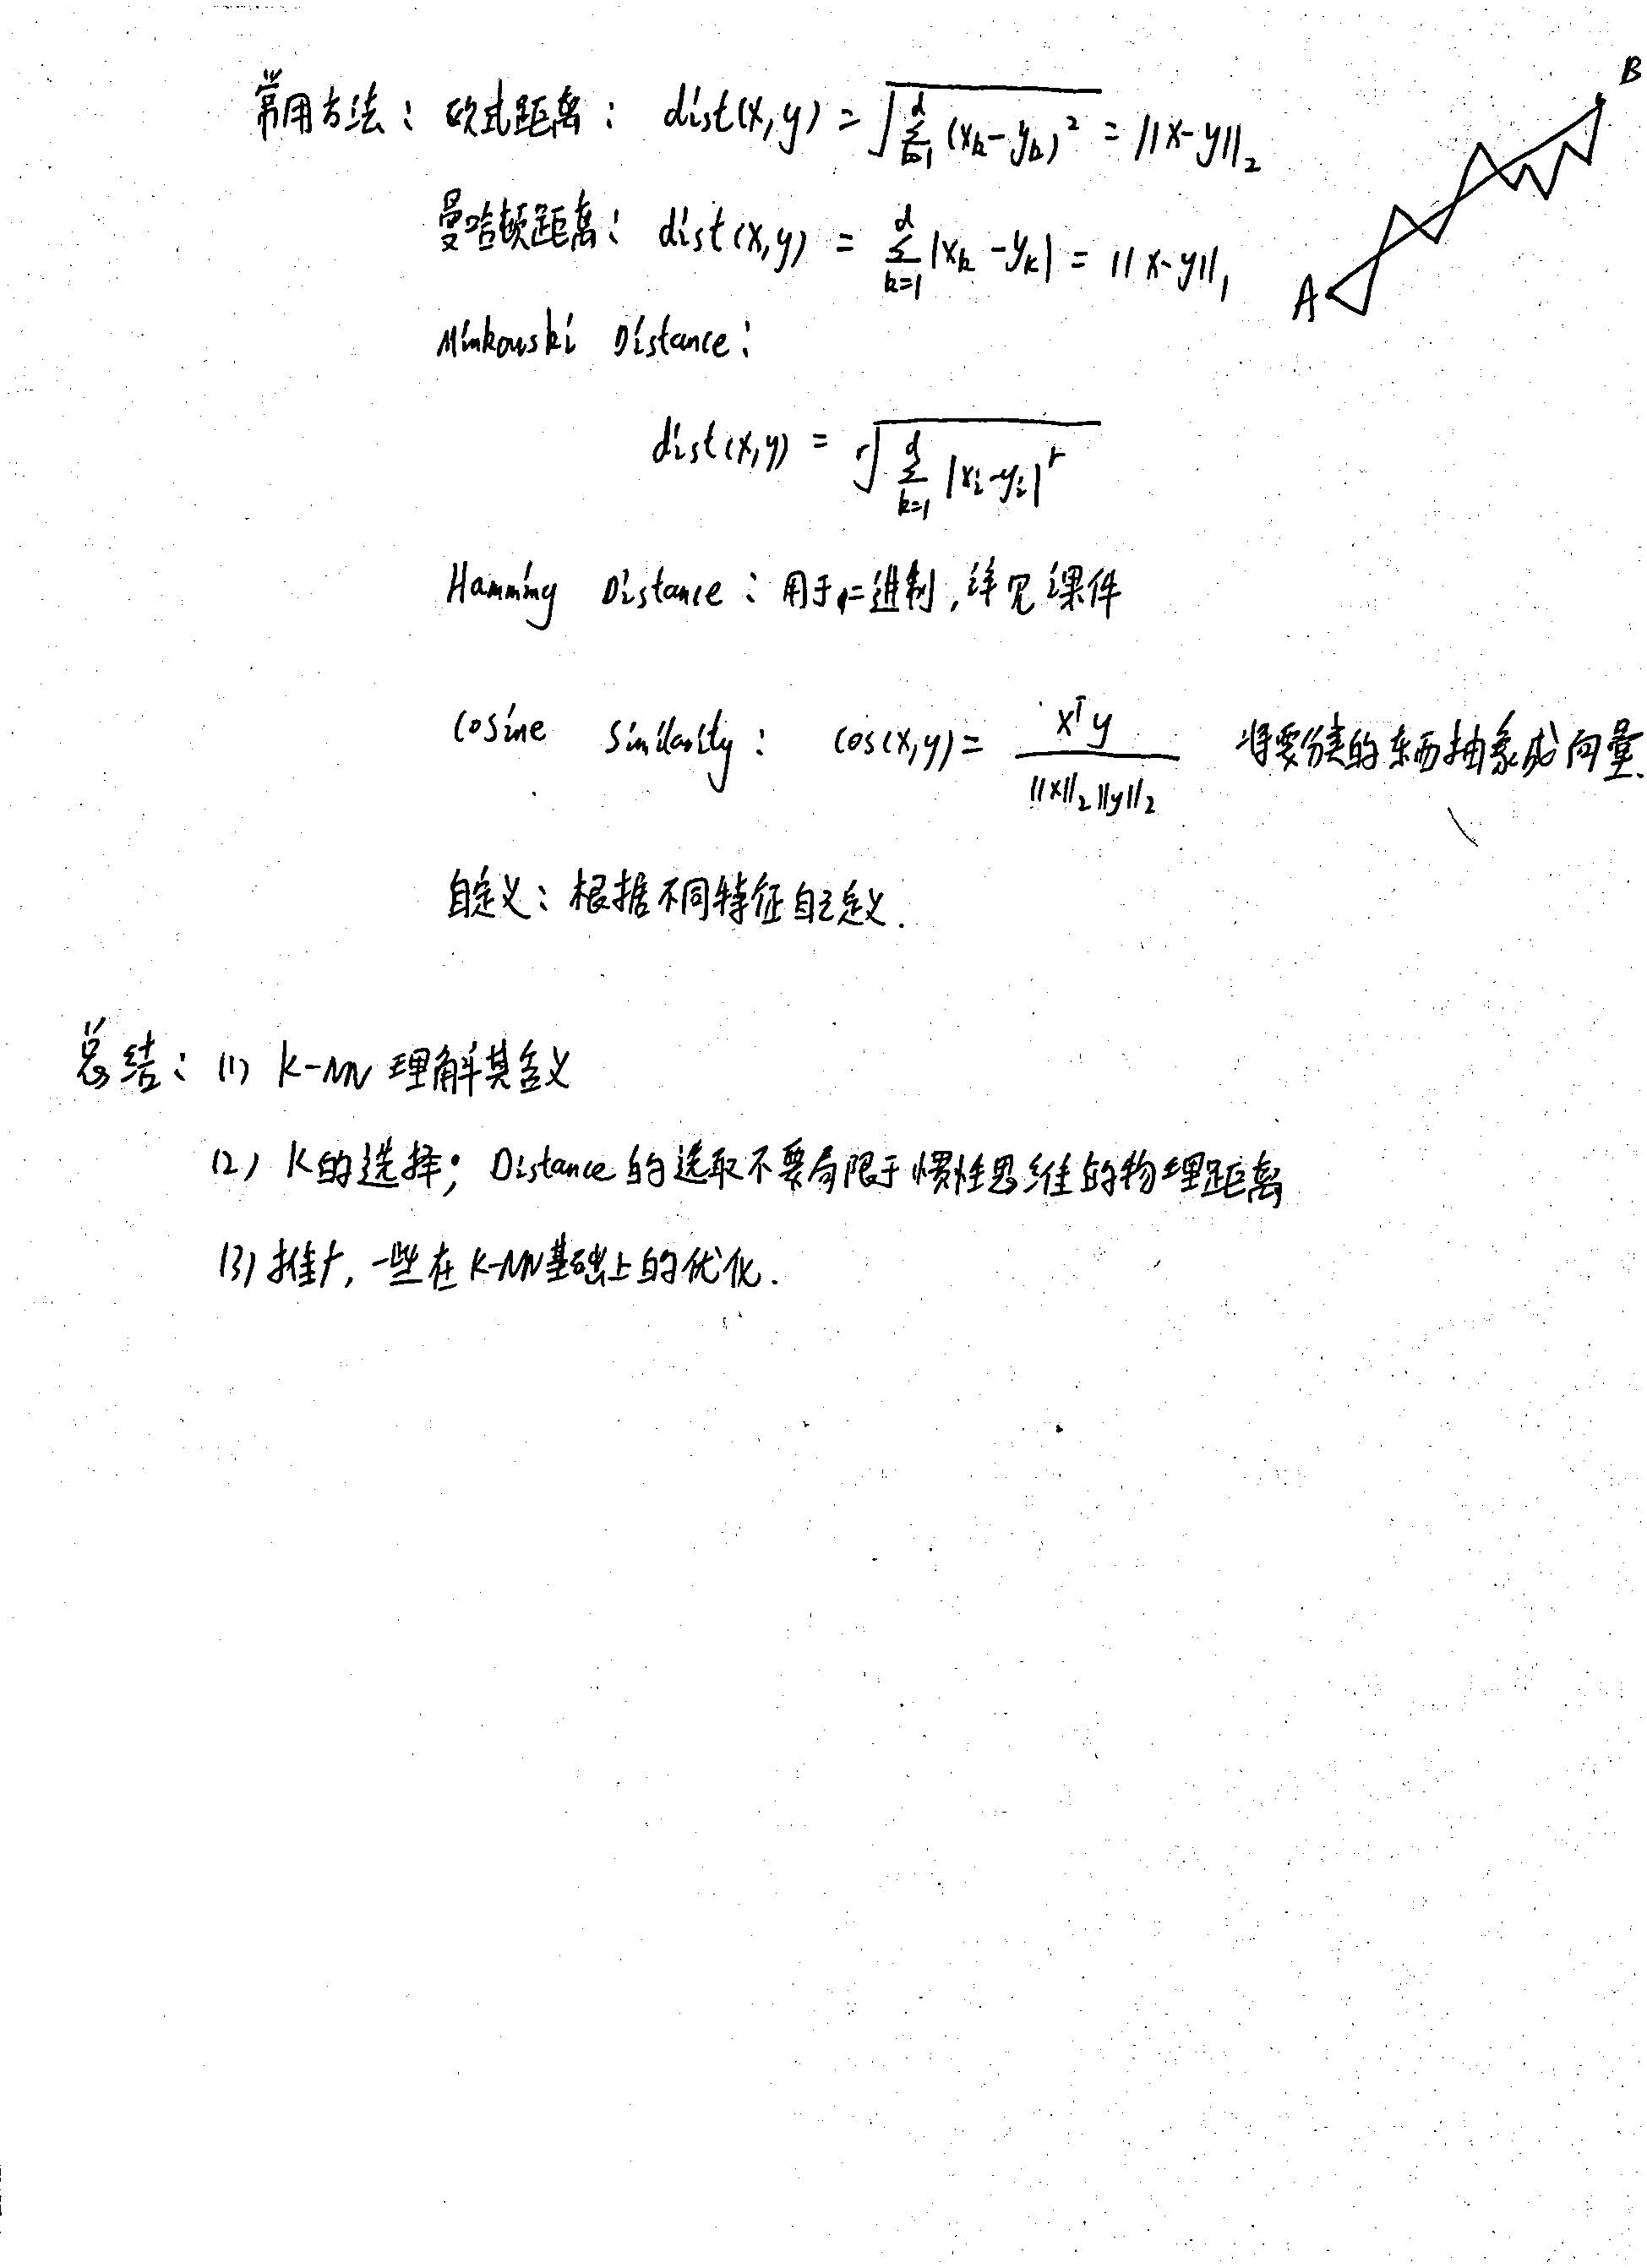 常用方法： 欧式距离： dist(x,y) = √(∑_{k=1}^{d} (x_k - y_k)²) = ||x-y||₂
B
曼哈顿距离： dist(x,y) = ∑_{k=1}^{d} |x_k - y_k| = ||x-y||₁
A
Minkowski Distance：
dist(x,y) = ʳ√(∑_{k=1}^{d} |x_i - y_i|^r)
Hamming Distance：用于二进制，详见课件
Cosine Similarity： cos(x,y) = x^T y / (||x||₂ ||y||₂) 将要分类的东西抽象成向量.
自定义：根据不同特征自己定义.
总结：(1) K-NN 理解其含义
(2) K的选择；Distance 的选取不要局限于惯性思维的物理距离
(3) 推广，一些在K-NN基础上的优化.